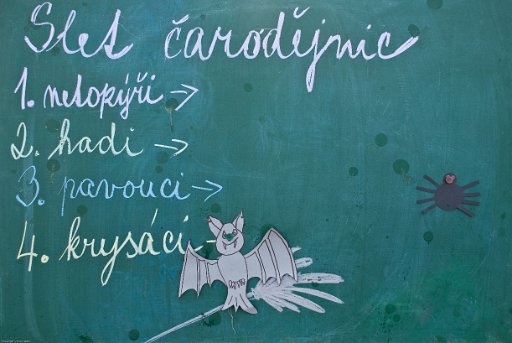 Slet čarodějnic
1. netopýři →
2. hadi →
3. pavouci →
4. krysáci -